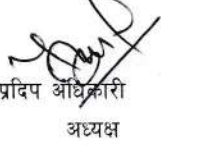 प्रदिप अधिकारी
अध्यक्ष